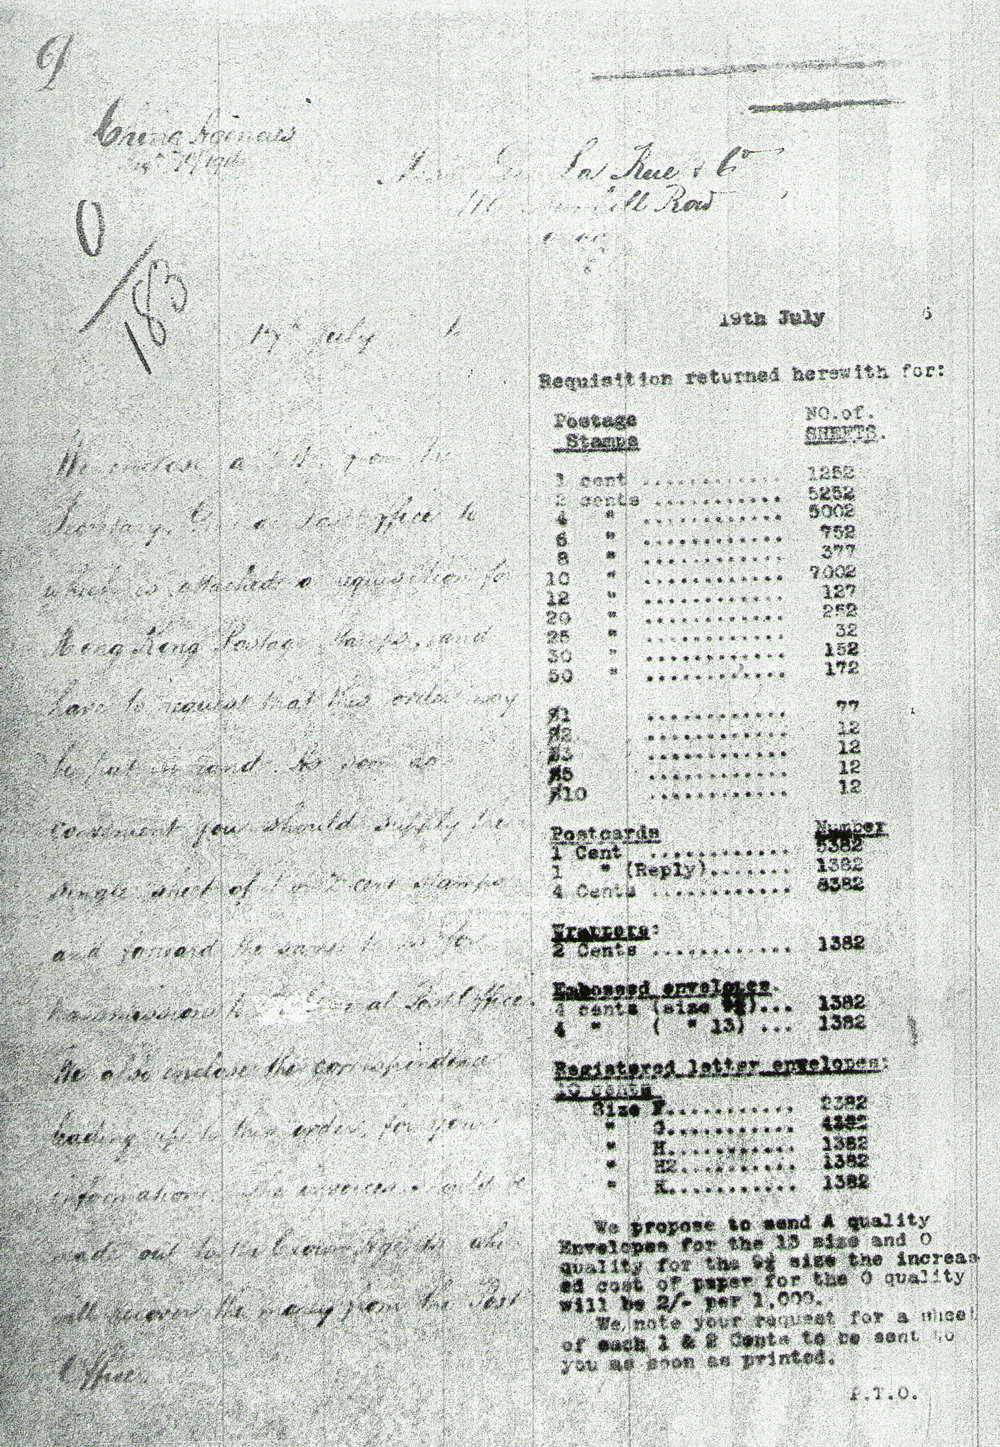 0/183
La Rue & Co
Row
17th July
We enclose a from the
Secretary, Office to
which is attached a requisition for
Hong Kong Postage Stamps, and
have to request that this order may
be put in hand. As soon as
convenient you should supply
single sheet of 1 & 2 cent stamps
and forward the same to us for
transmission to General Post Office.
We also enclose the correspondence
leading up to this order, for your
information. The invoices should be
made out to the Crown Agents who
will recover the money from the Post
Office.
19th July
Requisition returned herewith for:
Postage Stamps NO.of. SHEETS.
1 cent ............ 1252
2 cents ........... 5252
4 " ............ 5002
6 " ............ 752
8 " ............ 377
10 " ............ 7002
12 " ............ 127
20 " ............ 252
25 " ............ 32
30 " ............ 152
50 " ............ 172
$1 ............ 77
$2 ............ 12
$3 ............ 12
$5 ............ 12
$10 ............ 12
Postcards Number
1 Cent ............ 5382
1 " (Reply)....... 1382
4 Cents ........... 8382
Wrappers:
2 Cents ............ 1382
Embossed envelopes.
4 cents (size )... 1382
4 " ( " 13) ... 1382
Registered letter envelopes:
10 cents
Size F........... 2382
" G........... 4382
" H........... 1382
" H2.......... 1382
" K........... 1382
We propose to send A quality
Envelopes for the 13 size and O
quality for the 9½ size the increas-
ed cost of paper for the O quality
will be 2/- per 1,000.
We note your request for a sheet
of each 1 & 2 Cents to be sent to
you as soon as printed.
P.T.O.